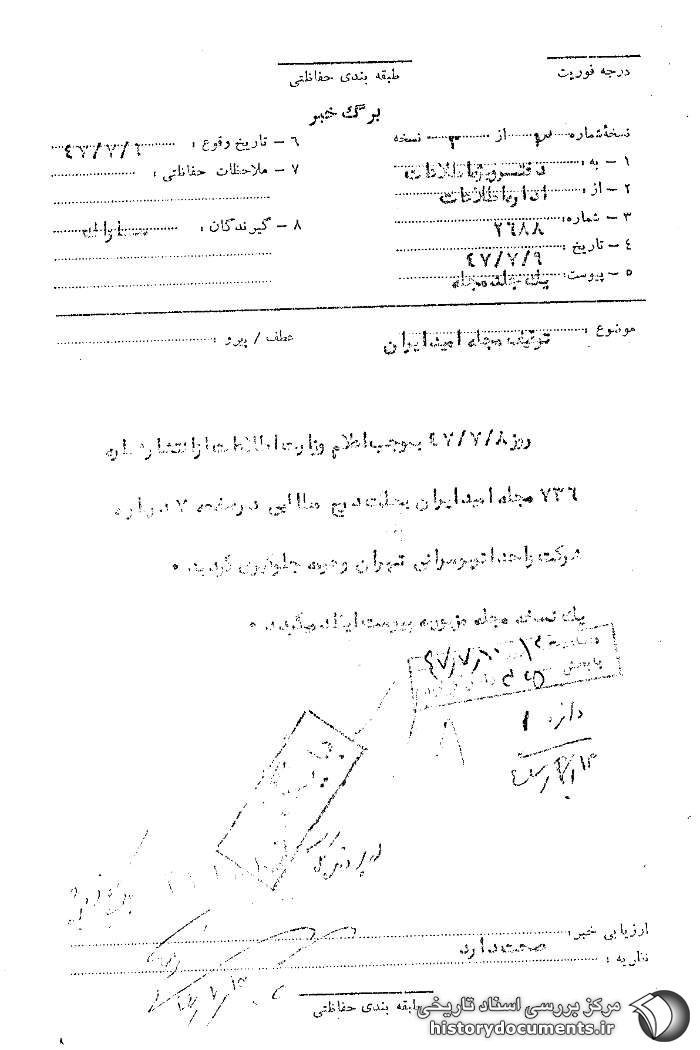 درجه فوریت
طبقه بندی حفاظتی
برگ خبر
نسخهٔ شماره ۳ از ۳ نسخه
۱ – به : دفتر ویژه اطلاعات
۲ – از : اداره اطلاعات
۳ – شماره: ۲۶۸۸
۴ – تاریخ : ۴۷/۷/۹
۵ – پیوست: یک جلد مجله
۶ – تاریخ وقوع : ۴۷/۷/۹
۷ – ملاحظات حفاظتی :
۸ – گیرندگان : ساواک
موضوع : توقیف مجله امید ایران
عطف / پیرو :
روز ۴۷/۷/۸ بموجب اعلام وزارت اطلاعات از انتشار شماره
۷۳۶ مجله امید ایران بعلت درج مطالبی در صفحه ۷ درباره
شرکت واحد اتوبوسرانی تهران وحومه جلوگیری گردید ٠
یک نسخه مجله مزبور به پیوست ایفاد میگردد ٠
۴۷/۷/۱۰
ارزیابی خبر : صحت دارد
نظریه :
طبقه بندی حفاظتی
۸
مرکز بررسی اسناد تاریخی
historydocuments.ir